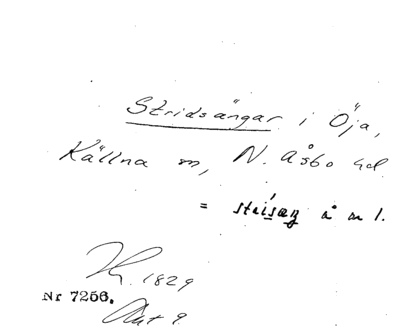 Stridsängar i Öja,
Källna sn, N. Åsbo hd.
= å m 1.
1829
Nr 7256.
Akt 9